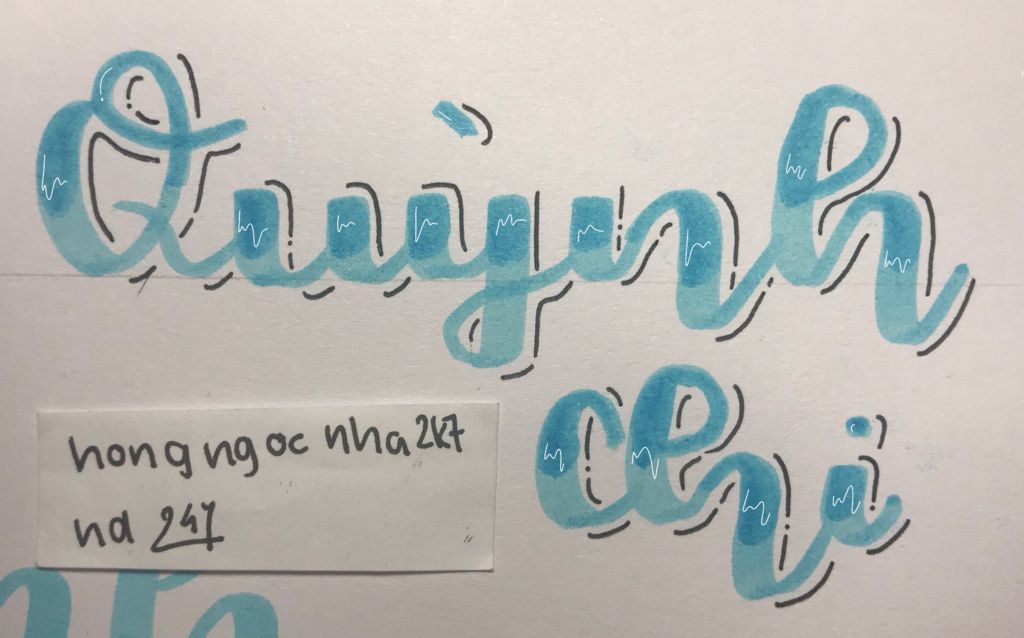 Quỳnh
Chi
hongngoc nha2k7
nd 247